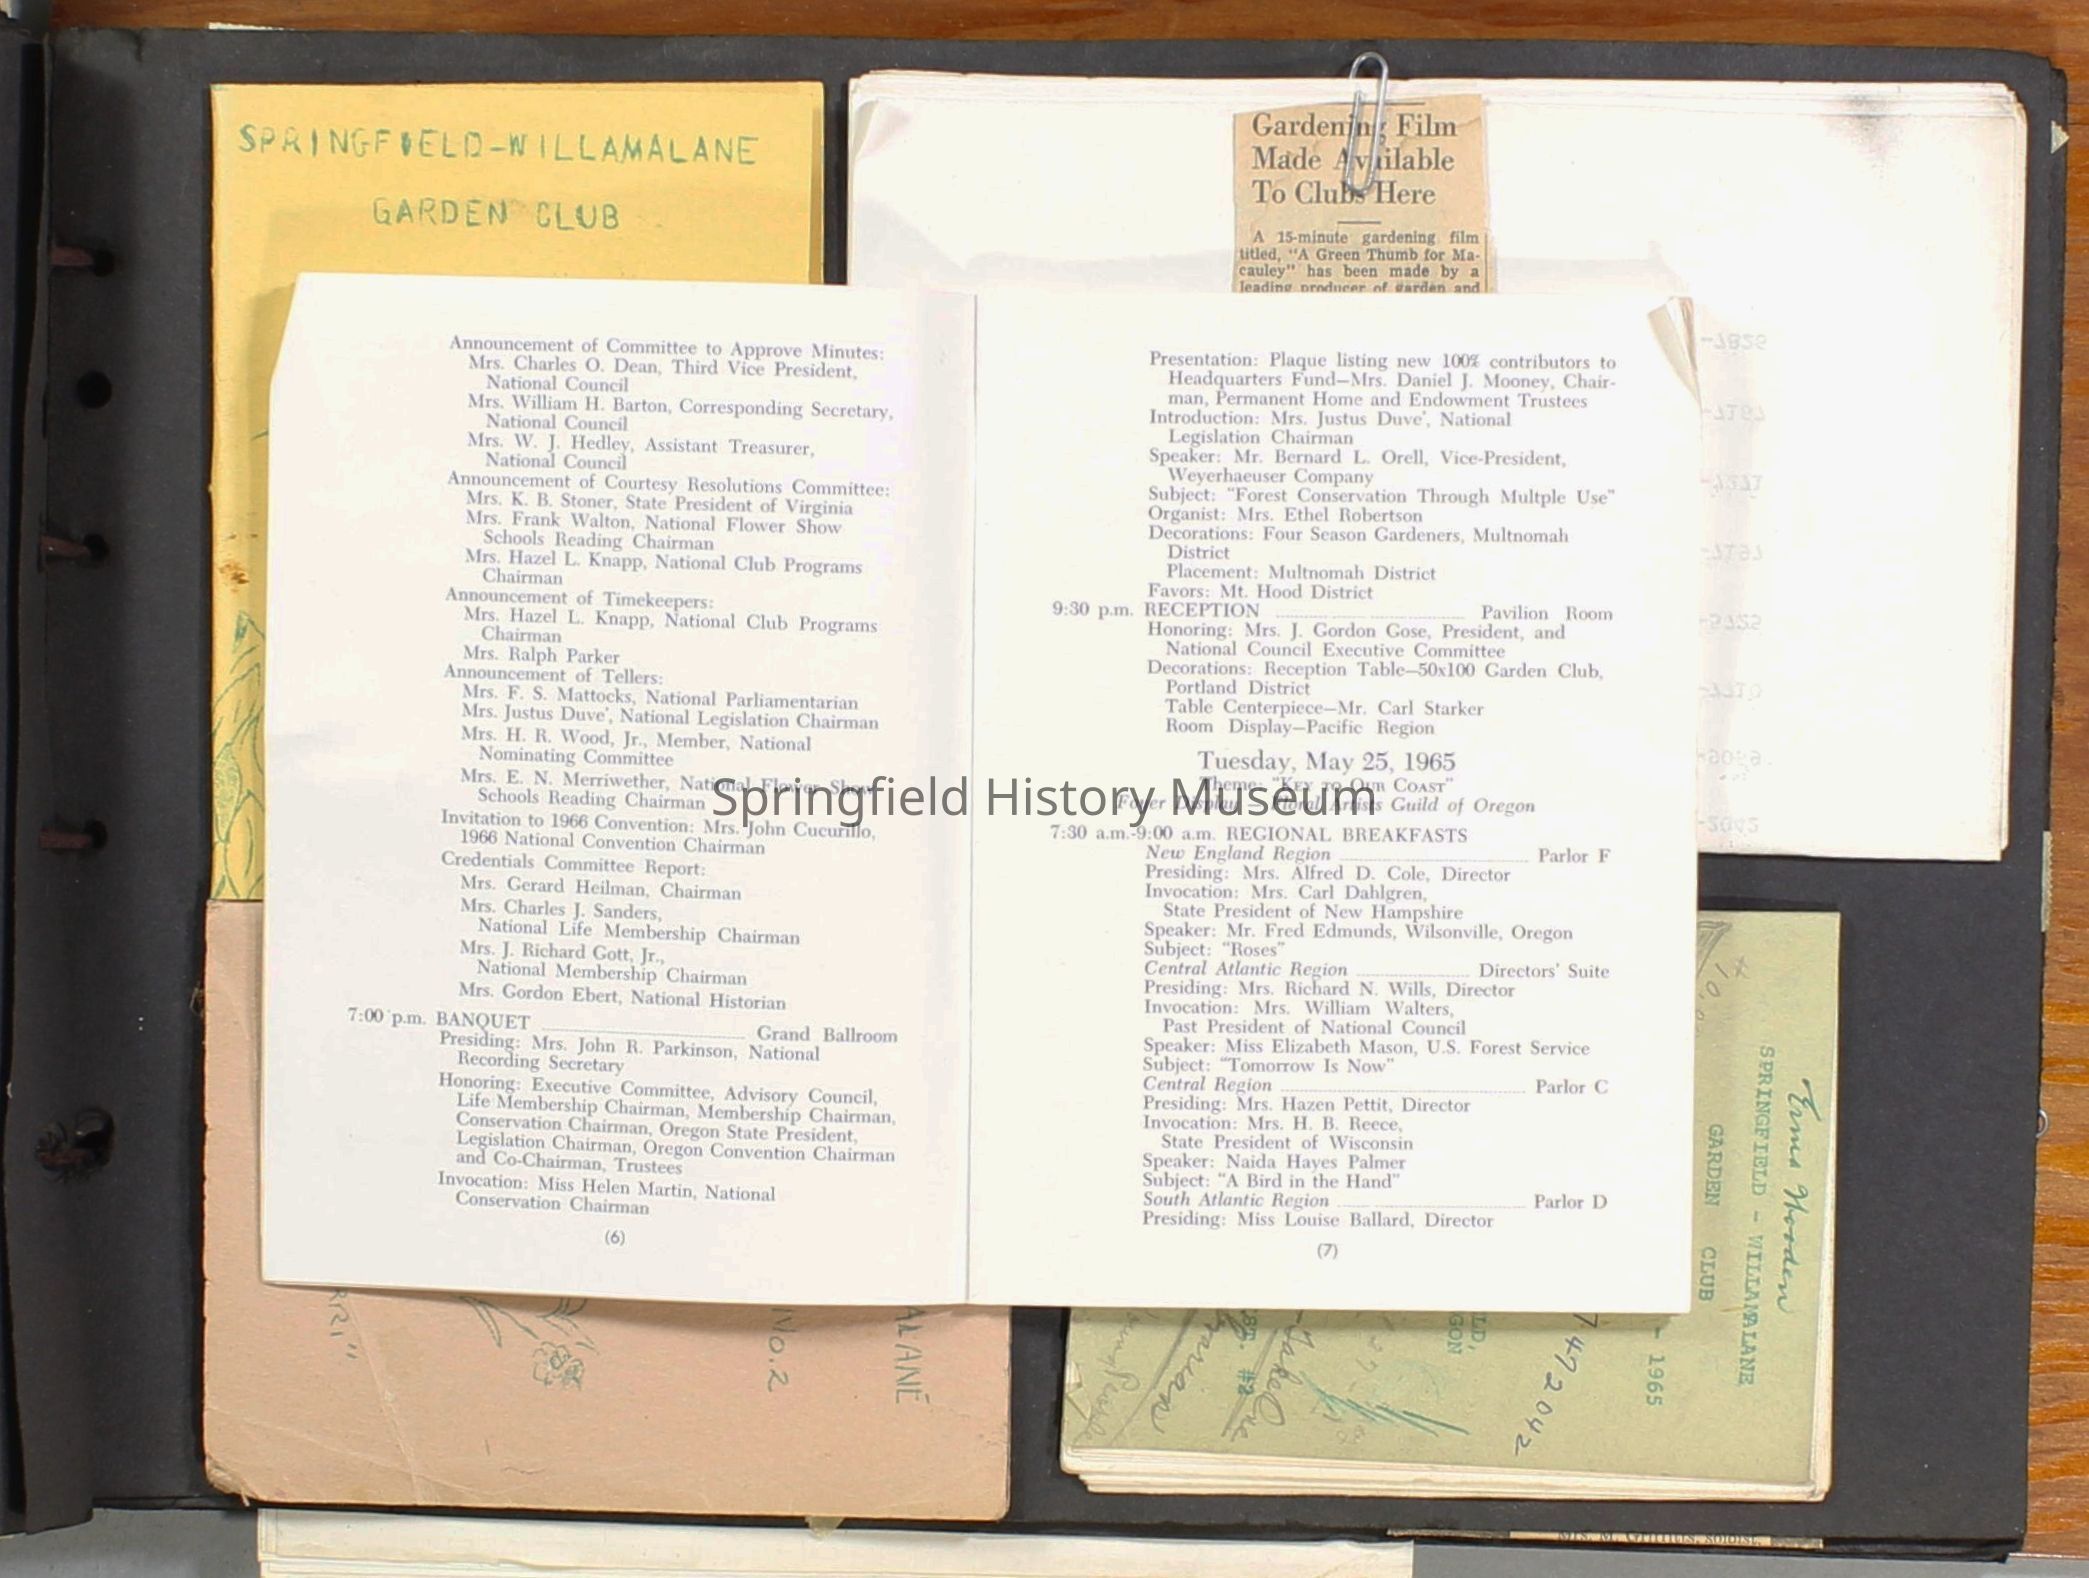 SPRINGFIELD-WILLAMALANE
GARDEN CLUB
Gardening Film
Made Available
To Clubs Here
A 15-minute gardening film
titled, "A Green Thumb for Ma-
cauley" has been made by a
leading producer of garden and
Announcement of Committee to Approve Minutes:
Mrs. Charles O. Dean, Third Vice President,
National Council
Mrs. William H. Barton, Corresponding Secretary,
National Council
Mrs. W. J. Hedley, Assistant Treasurer,
National Council
Announcement of Courtesy Resolutions Committee:
Mrs. K. B. Stoner, State President of Virginia
Mrs. Frank Walton, National Flower Show
Schools Reading Chairman
Mrs. Hazel L. Knapp, National Club Programs
Chairman
Announcement of Timekeepers:
Mrs. Hazel L. Knapp, National Club Programs
Chairman
Mrs. Ralph Parker
Announcement of Tellers:
Mrs. F. S. Mattocks, National Parliamentarian
Mrs. Justus Duve', National Legislation Chairman
Mrs. H. R. Wood, Jr., Member, National
Nominating Committee
Mrs. E. N. Merriwether, National Flower Show
Schools Reading Chairman
Invitation to 1966 Convention: Mrs. John Cucurillo,
1966 National Convention Chairman
Credentials Committee Report:
Mrs. Gerard Heilman, Chairman
Mrs. Charles J. Sanders,
National Life Membership Chairman
Mrs. J. Richard Gott, Jr.,
National Membership Chairman
Mrs. Gordon Ebert, National Historian
7:00 p.m. BANQUET Grand Ballroom
Presiding: Mrs. John R. Parkinson, National
Recording Secretary
Honoring: Executive Committee, Advisory Council,
Life Membership Chairman, Membership Chairman,
Conservation Chairman, Oregon State President,
Legislation Chairman, Oregon Convention Chairman
and Co-Chairman, Trustees
Invocation: Miss Helen Martin, National
Conservation Chairman
(6)
Presentation: Plaque listing new 100% contributors to
Headquarters Fund—Mrs. Daniel J. Mooney, Chair-
man, Permanent Home and Endowment Trustees
Introduction: Mrs. Justus Duve', National
Legislation Chairman
Speaker: Mr. Bernard L. Orell, Vice-President,
Weyerhaeuser Company
Subject: "Forest Conservation Through Multple Use"
Organist: Mrs. Ethel Robertson
Decorations: Four Season Gardeners, Multnomah
District
Placement: Multnomah District
Favors: Mt. Hood District
9:30 p.m. RECEPTION Pavilion Room
Honoring: Mrs. J. Gordon Gose, President, and
National Council Executive Committee
Decorations: Reception Table—50x100 Garden Club,
Portland District
Table Centerpiece—Mr. Carl Starker
Room Display—Pacific Region
Tuesday, May 25, 1965
Theme: "KEY TO OUR COAST"
Foyer Display — Floral Artists Guild of Oregon
7:30 a.m.-9:00 a.m. REGIONAL BREAKFASTS
New England Region Parlor F
Presiding: Mrs. Alfred D. Cole, Director
Invocation: Mrs. Carl Dahlgren,
State President of New Hampshire
Speaker: Mr. Fred Edmunds, Wilsonville, Oregon
Subject: "Roses"
Central Atlantic Region Directors' Suite
Presiding: Mrs. Richard N. Wills, Director
Invocation: Mrs. William Walters,
Past President of National Council
Speaker: Miss Elizabeth Mason, U.S. Forest Service
Subject: "Tomorrow Is Now"
Central Region Parlor C
Presiding: Mrs. Hazen Pettit, Director
Invocation: Mrs. H. B. Reece,
State President of Wisconsin
Speaker: Naida Hayes Palmer
Subject: "A Bird in the Hand"
South Atlantic Region Parlor D
Presiding: Miss Louise Ballard, Director
(7)
Springfield History Museum
SPRINGFIELD - WILLAMALANE
GARDEN CLUB
- 1965
7472042
ALANE
NO.2
Mrs. M. Griffitus, soloist.